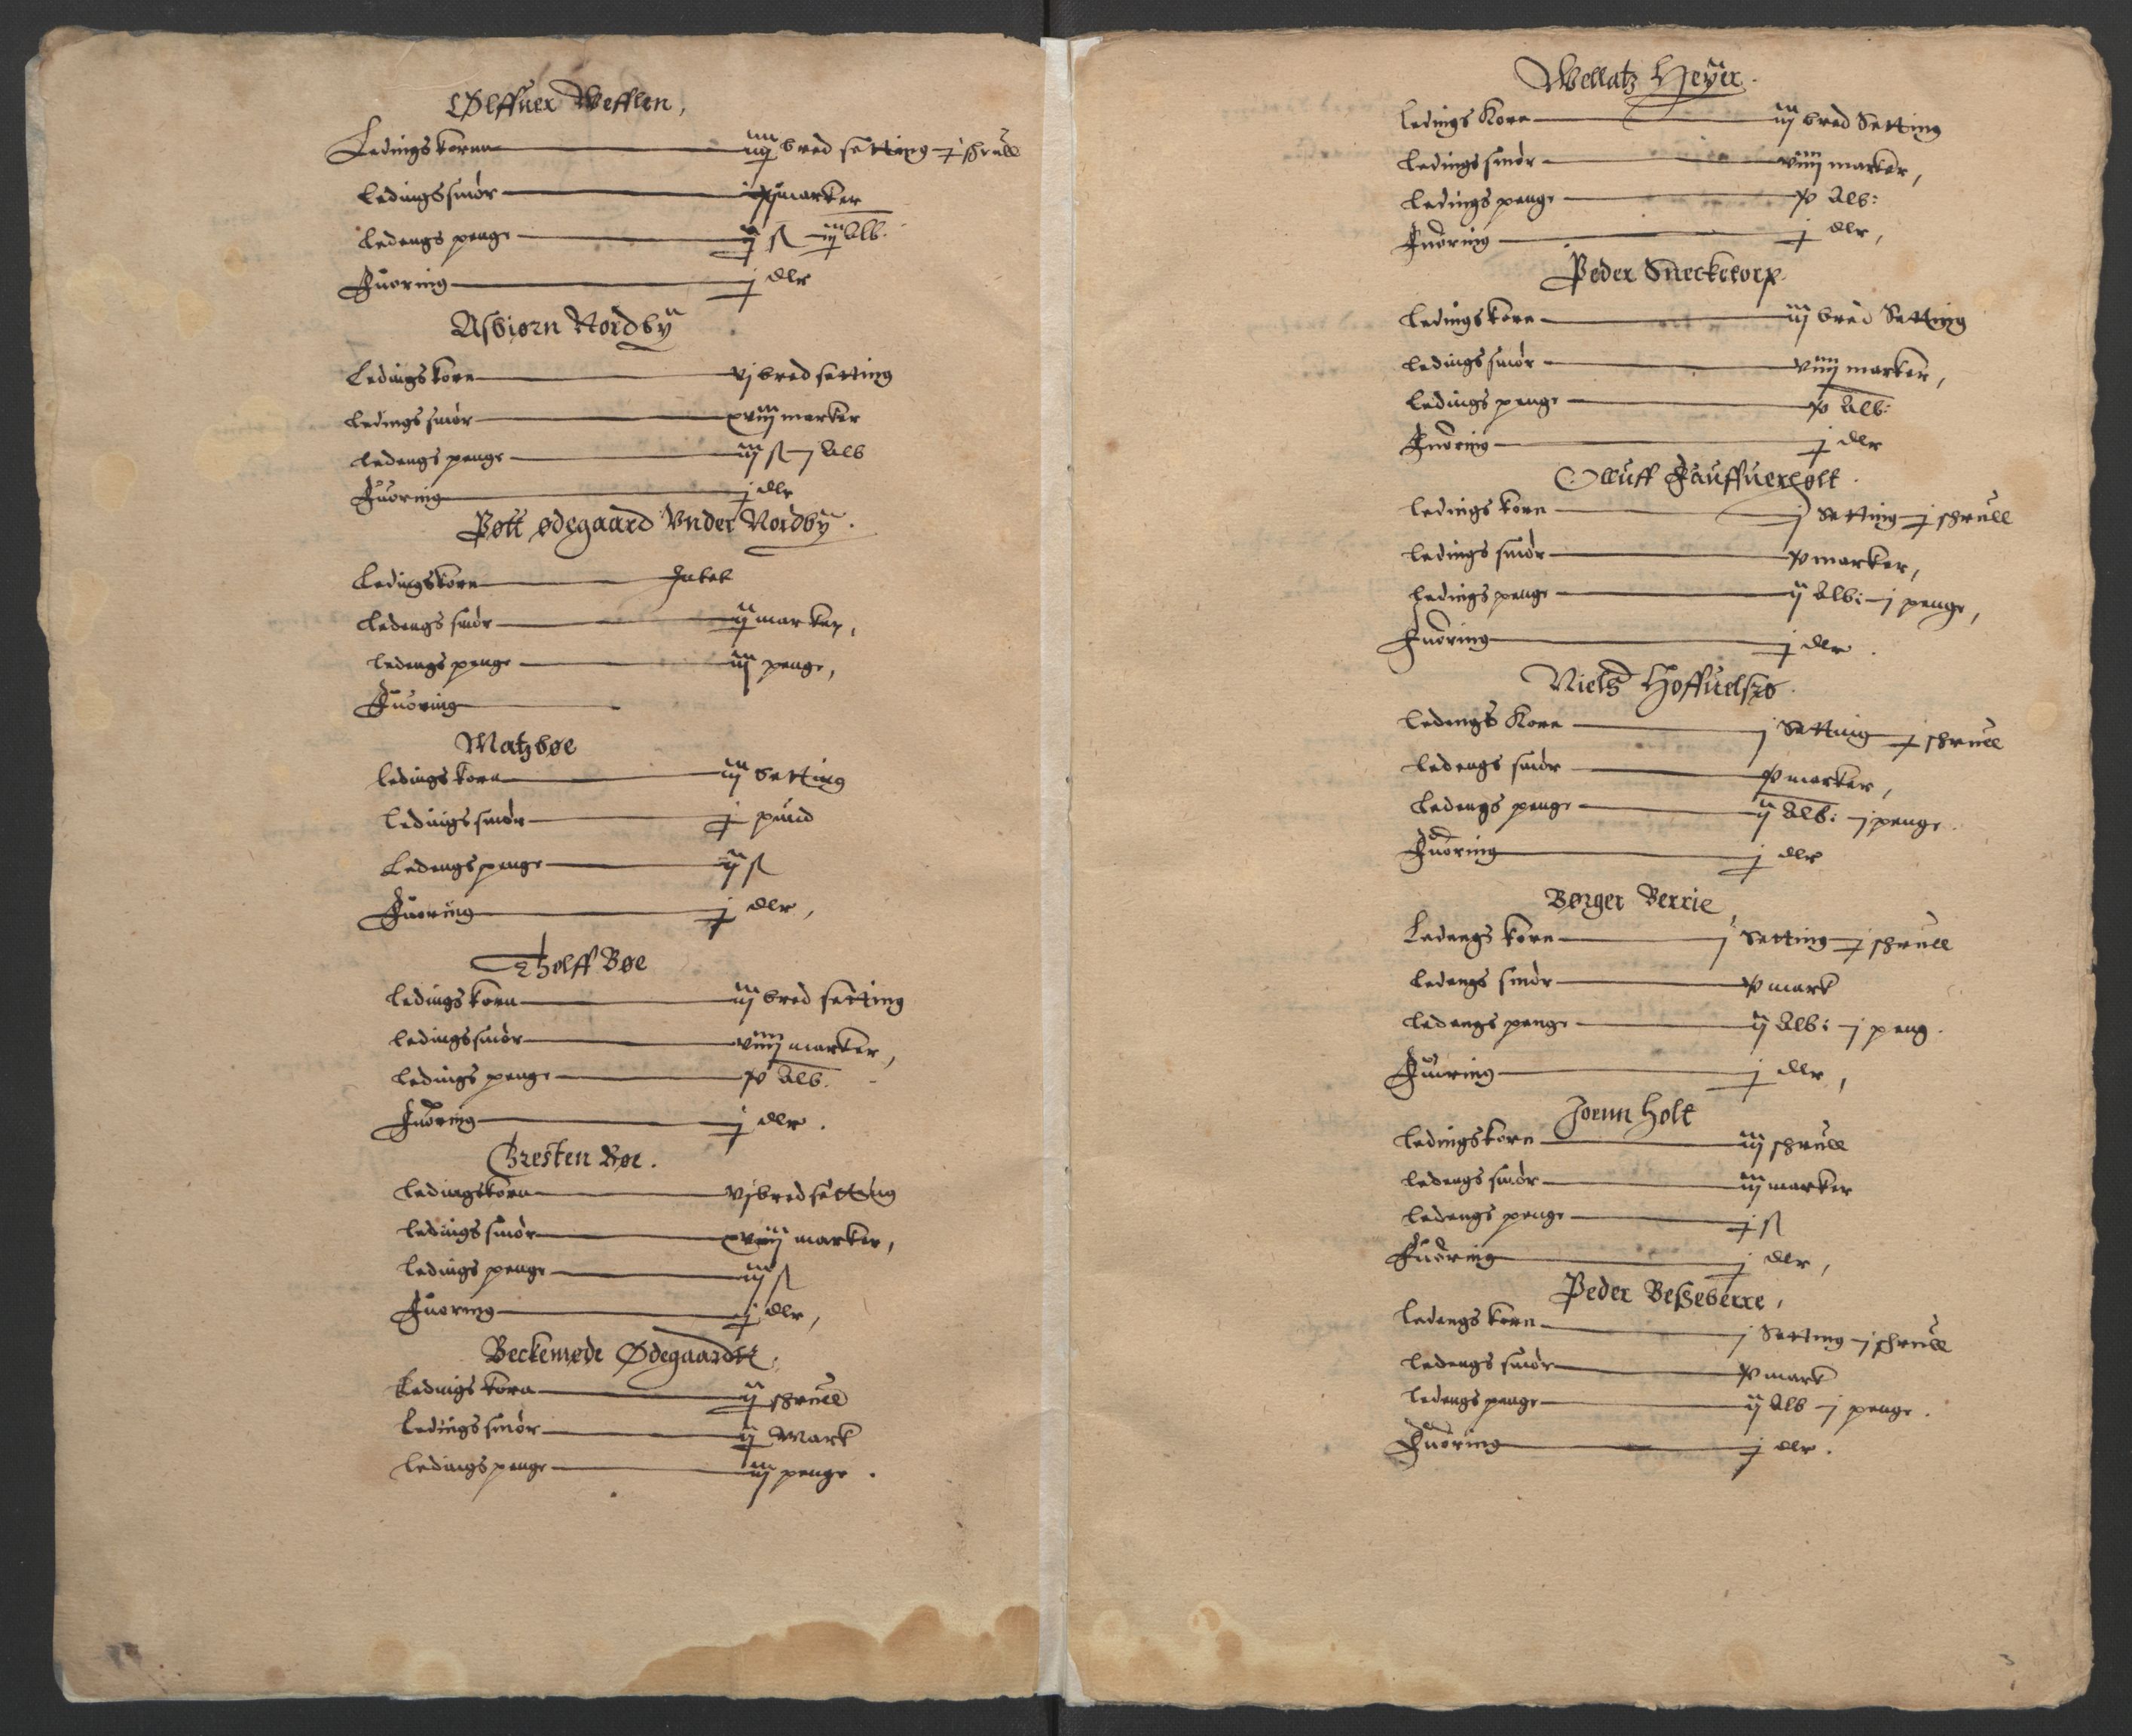 Ølffuer Wefflen,
Ledings kornn — iiij bred setting — j shrull
Ledings smør — marker
Ledengs penge — ij ß — iij Alb.
Fuoring — j dlr
Asbiørn Nordbÿ
Ledings korn — vj bred setting
Ledings smør — xviij marker
Ledengs penge — iij ß — j Alb
Fuoring — j dlr
Pøtt ødegaard Vnder Nordbÿ.
Ledings korn — Intet
Ledengs smør — ij marker,
Ledengs penge — iij penge,
Fuoring —
Matz bøe
Ledings korn — iij Setting
Ledings smør — j pund
Ledengs penge — ij ß
Fuoring — j dlr,
Tholff Bøe
Ledings korn — iij bred setting
Ledings smør — viiij marker,
Ledings penge — v Alb.
Fuoring — j dlr.
Christen Bøe.
Ledings korn — vj bred setting
Ledings smør — xviij marker,
Ledings penge — iij ß
Fuoring — j dlr,
Beckemøde Ødegaardt,
Ledings korn — ij shrull
Ledings smør — ij Mark
Ledings penge — iij penge.
Wellatz Heÿer.
Ledings Korn — iij bred Setting
Ledings smør — viiij marker,
Ledings penge — v Alb:
Fuoring — j dlr,
Peder Sneckerorp.
Ledings korn — iij bred Setting
Ledings smør — viiij marker,
Ledings penge — v Alb:
Fuoring — j dlr
Oluff Fauffuerholt.
Ledings korn — j Setting — j shrull
Ledings smør — v marker,
Ledings penge — ij Alb: — j penge,
Fuoring — j dlr.
Niels Hoffuelsrø.
Ledengs Korn — j Setting — j shrull
Ledengs smør — v marker,
Ledengs penge — ij Alb: — j penge.
Fuoring — j dlr
Børger Berrie,
Ledengs korn — j Setting — j shrull
Ledengs smør — v mark
Ledengs penge — ij Alb: — j peng.
Fuoring — j dlr,
Joenn Holt
Ledings korn — iij shrull
Ledengs smør — iij marker
Ledengs penge — j ß
Fuoring — j dlr,
Peder Beßeberre,
Ledengs korn — j Setting — j shrull
Ledengs smør — v mark
Ledengs penge — ij Alb — j penge.
Fuoring — j dlr.